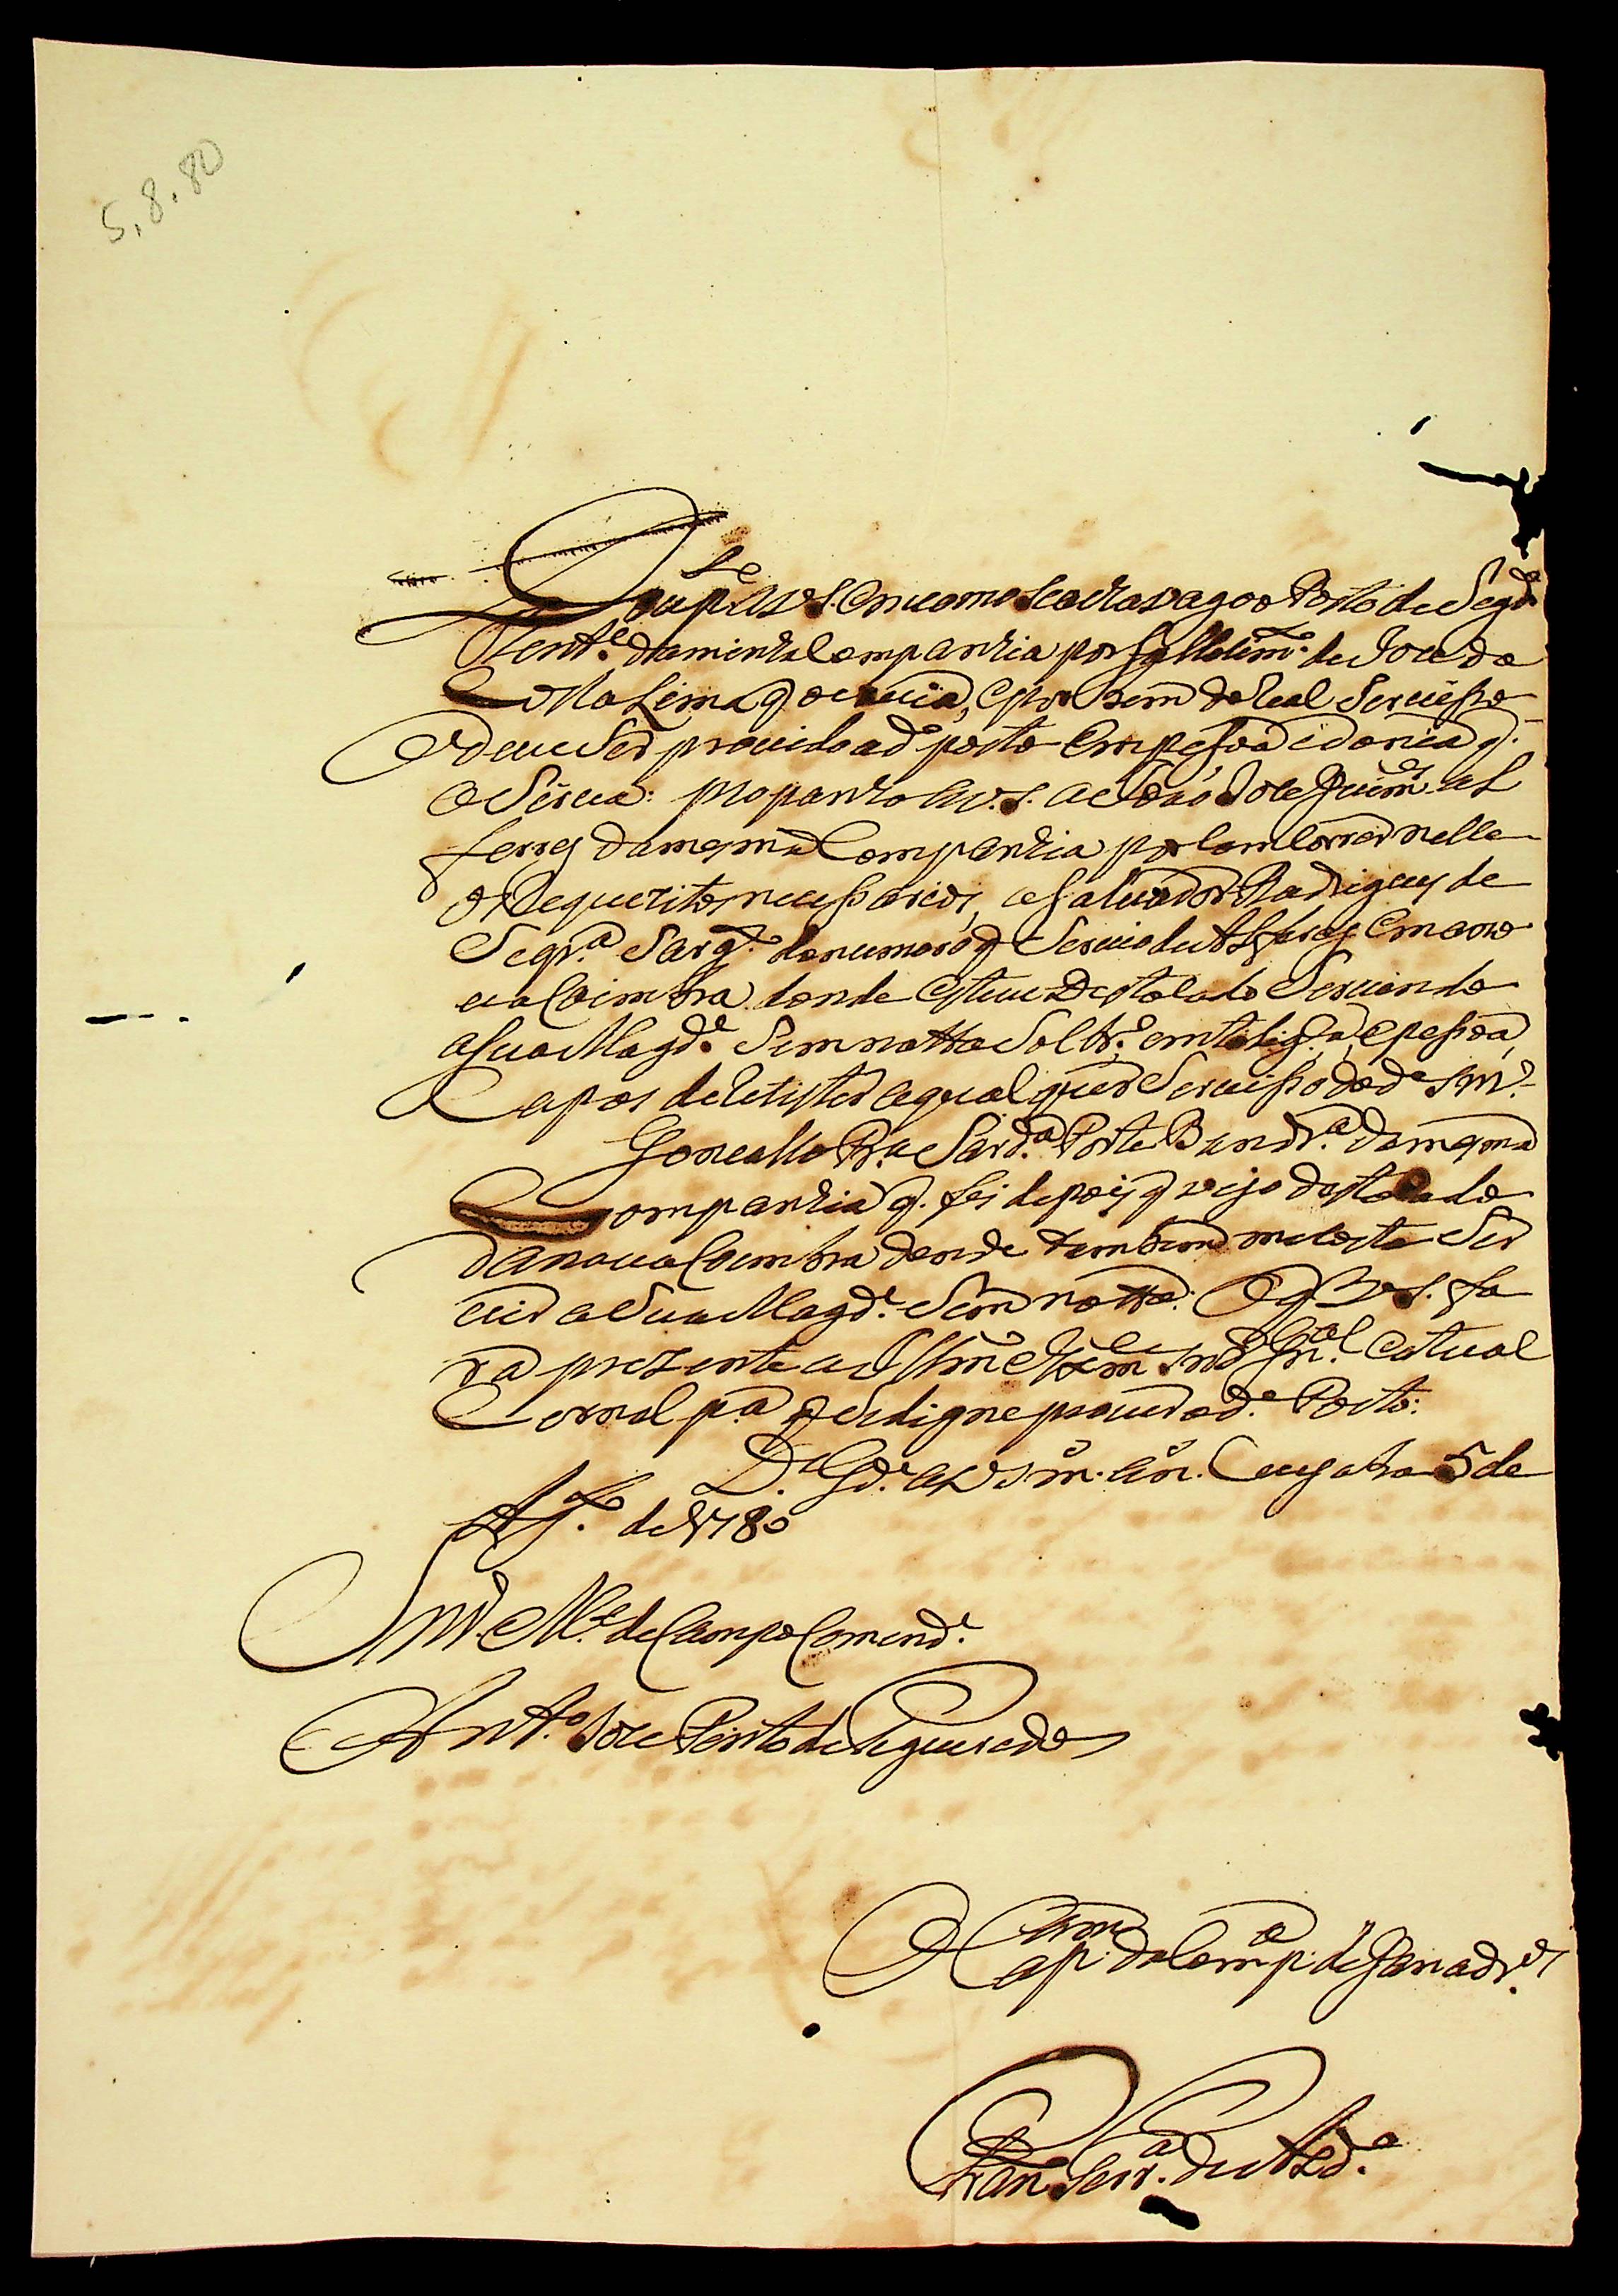 5.8.80
V. S. em como se acha vago o Posto de Segd.º
Tent.e da minha Companhia por falleCim.to de Joze da
Costa Lima q̃ o exercia, e por bem do Real Servisso
e deve Ser provido o d.º posto em pessoa idonea q.
o Sirva: proponho a V. S. a João Joze Guim.es Al
feres da mesma Companhia por Concorrer nelle
os Requezitos nessessarios, a Salvador Rodrigues de
Sequr.a Sarg.to do numoro q̃ Servio de Alferes em a no
va Coimbra donde esteve Destacado Servindo
a Sua Magd.e Sem notta Solbr.º entelig.a, e pessoa
Capas de Rezistir a qual quer Servisso do d.º Snr.
Goncallo Pr.a Sard.a Porta Bandr.a da mesma
Companhia q. foi depois q̃ veyo destacado
da nova Coimbra donde tambem Ser
vir a Sua Magd.e Sem notta. O q̃ V. S. fa
ra prezente ao Illm.º e Exm.º Snr. Gn.al e atual
p.a q̃ Se digne prover o d.º Posto.
D.s Gd.e a V. S. m. an. Cuyaba 5 de
Ag.to de 1780
Snr. M.e de Campo Comend.e
Ant.º Joze Pinto de Figueredo
Cap.am da Comp.a de Ganadr.os